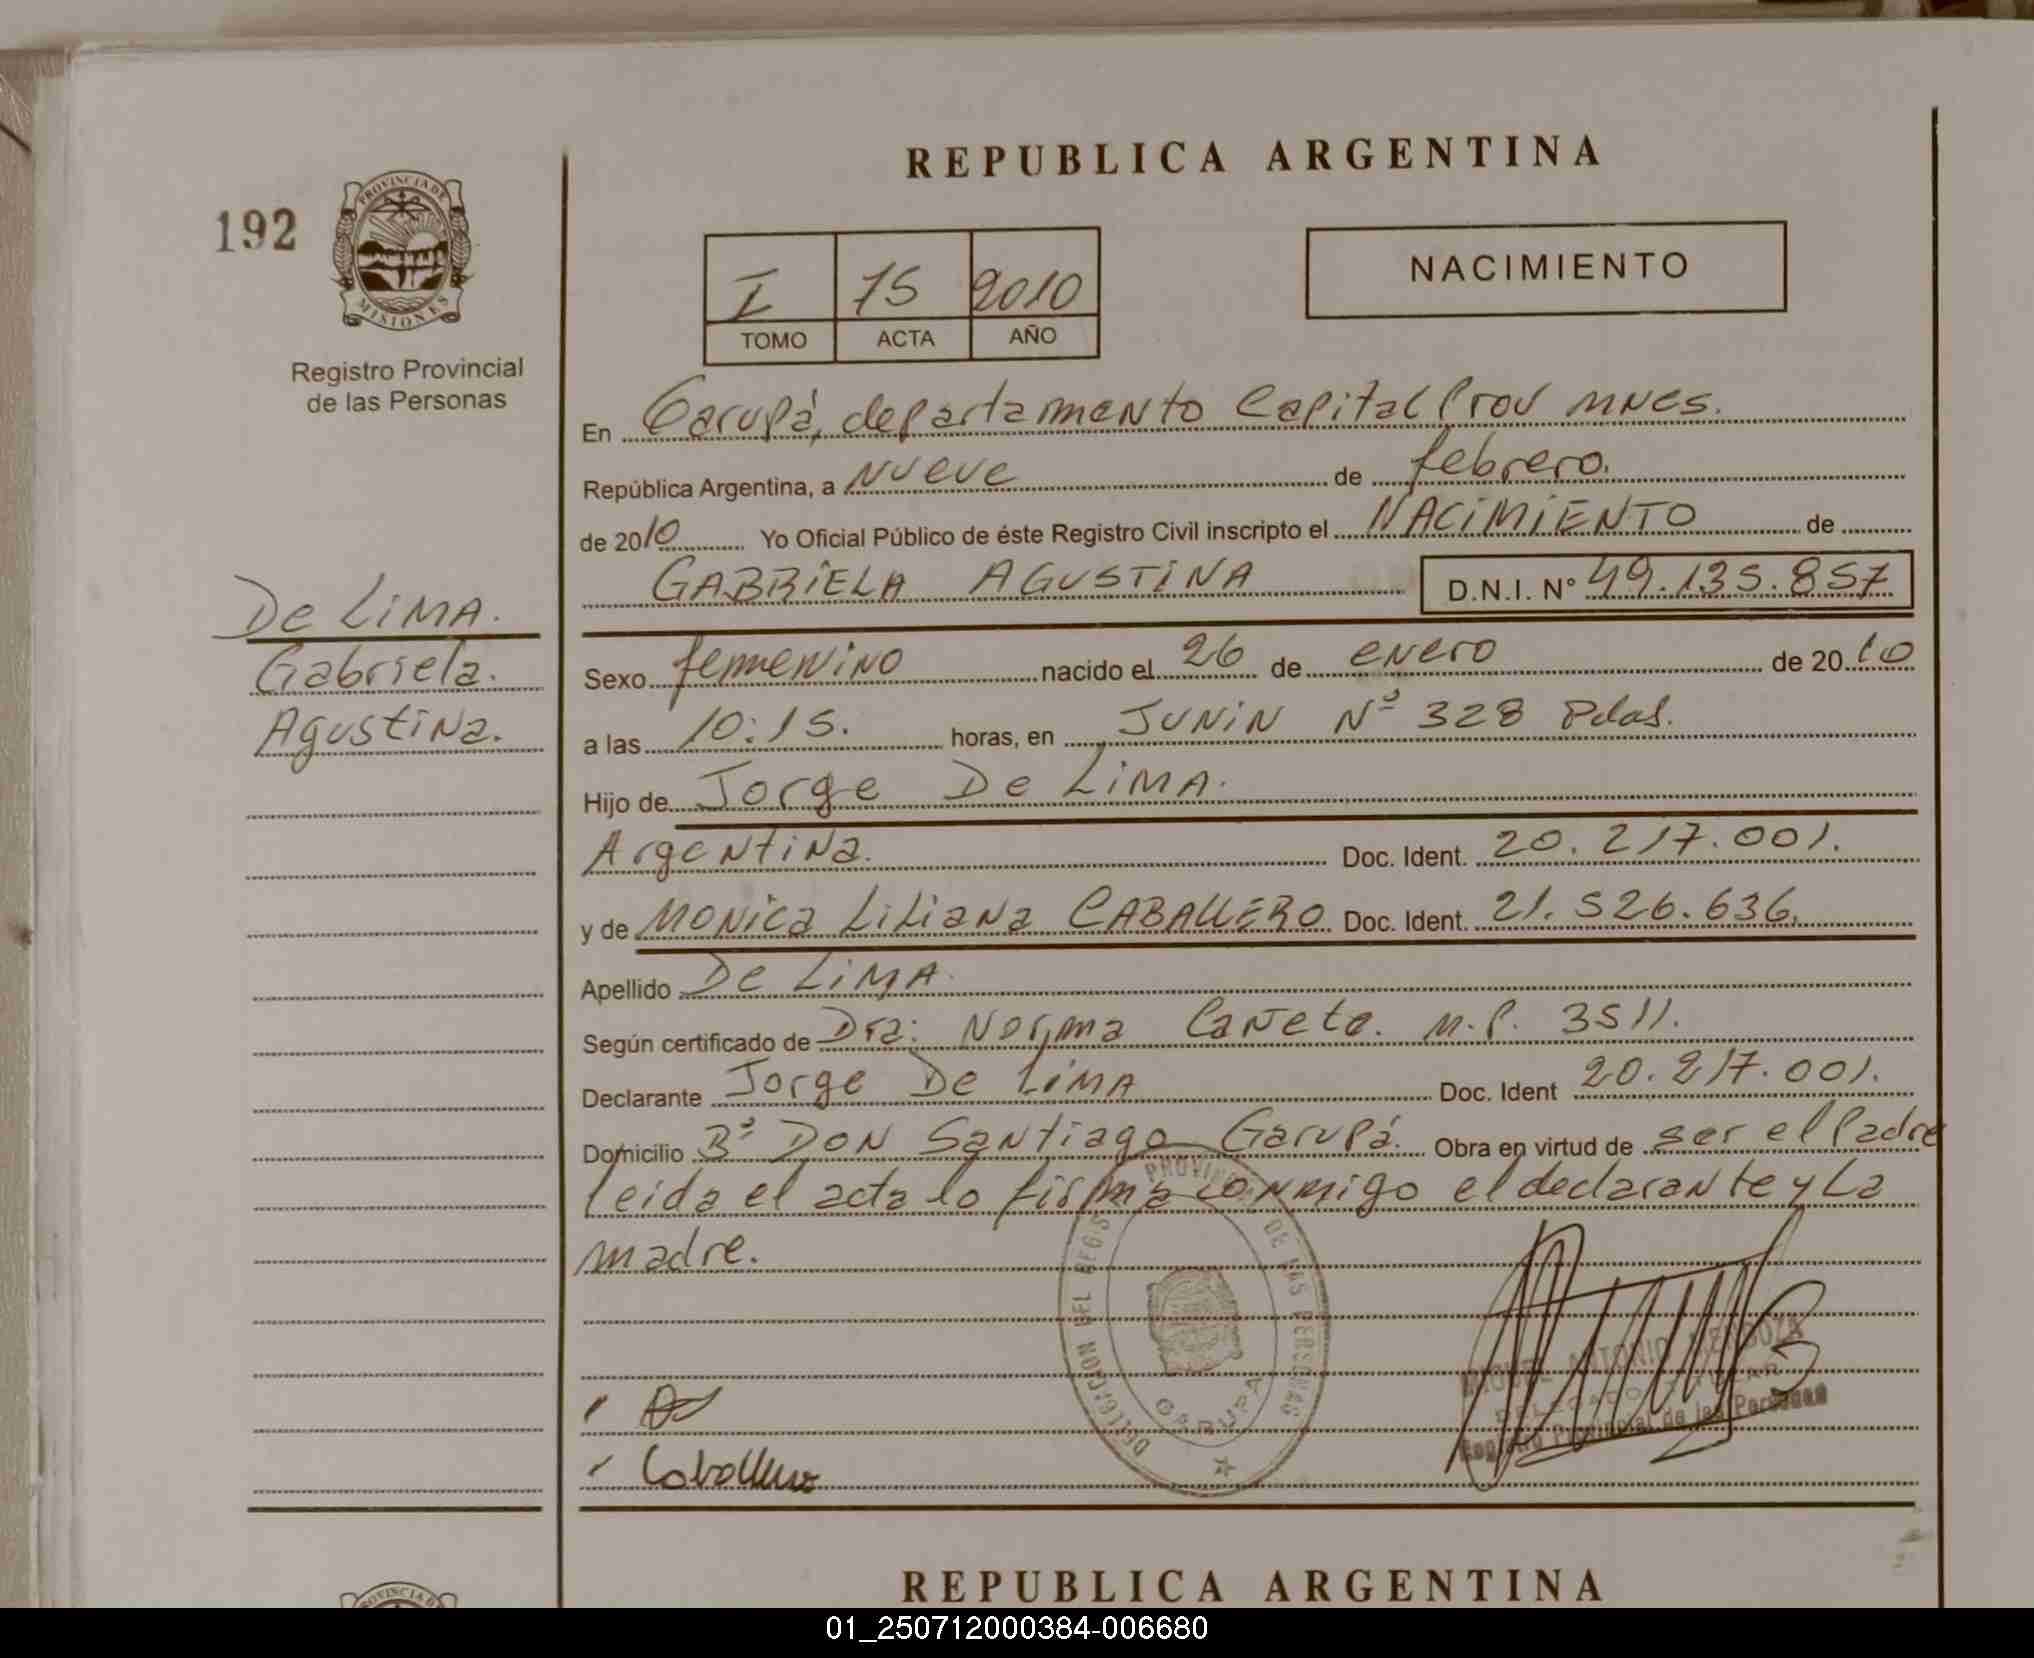 REPUBLICA ARGENTINA
192
PROVINCIA DE
MISIONES
Registro Provincial
de las Personas
I 75 2010
TOMO ACTA AÑO
NACIMIENTO
En Garupá, departamento Capital Prov MNES.
República Argentina, a NUEVE de febrero.
de 2010 Yo Oficial Público de éste Registro Civil inscripto el NACIMIENTO de
GABRIELA AGUSTINA D.N.I. Nº 49.135.857
De LIMA.
Gabriela.
Agustina.
Sexo femenino nacido el 26 de enero de 2010
a las 10:15. horas, en JUNIN Nº 328 Pdas.
Hijo de Jorge De LIMA.
Argentina. Doc. Ident. 20.217.001.
y de MONICA LILIANA CABALLERO Doc. Ident. 21.526.636.
Apellido De LIMA.
Según certificado de Dra: Norma M.P. 3511.
Declarante Jorge De LIMA Doc. Ident 20.217.001.
Domicilio Bº DON Santiago Garupá. Obra en virtud de ser el Padre
leida el acta lo firma conmigo el declarante y La
madre.
DELEGACION DEL REGIS PROVIN DE LAS PERSONAS
GARUPA
MIGUEL ANTONIO MENDOZA
DELEGADO TITULAR
Registro Provincial de las Personas
Caballero
REPUBLICA ARGENTINA
PROVINCIA D
01_250712000384-006680